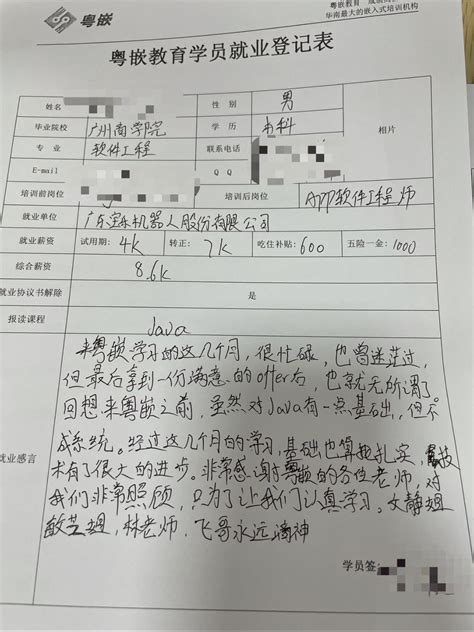 粤嵌
粤嵌教育
华南最大的嵌入式培训机构
粤嵌教育学员就业登记表
姓名 性别 男 相片
毕业院校 广州商学院 学历 本科
专业 软件工程 联系电话
E-mail Q Q
培训前岗位 培训后岗位 APP软件工程师
就业单位 广东宝乐机器人股份有限公司
就业薪资 试用期：4K 转正：7K 吃住补贴：600 五险一金：1000
综合薪资 8.6K
就业协议书解除 是
报读课程 Java
就业感言
来粤嵌学习的这几个月，很忙碌，也曾迷茫过，
但最后拿到一份满意的offer后，也就无所谓了。
回想来粤嵌之前，虽然对Java有一点基础，但不
成系统。经过这几个月的学习，基础也算把扎实，技
术有了很大的进步。非常感谢粤嵌的各位老师，对
我们非常照顾，只为了让我们认真学习。文静姐
敏芝姐，林老师，飞哥永远滴神
学员签